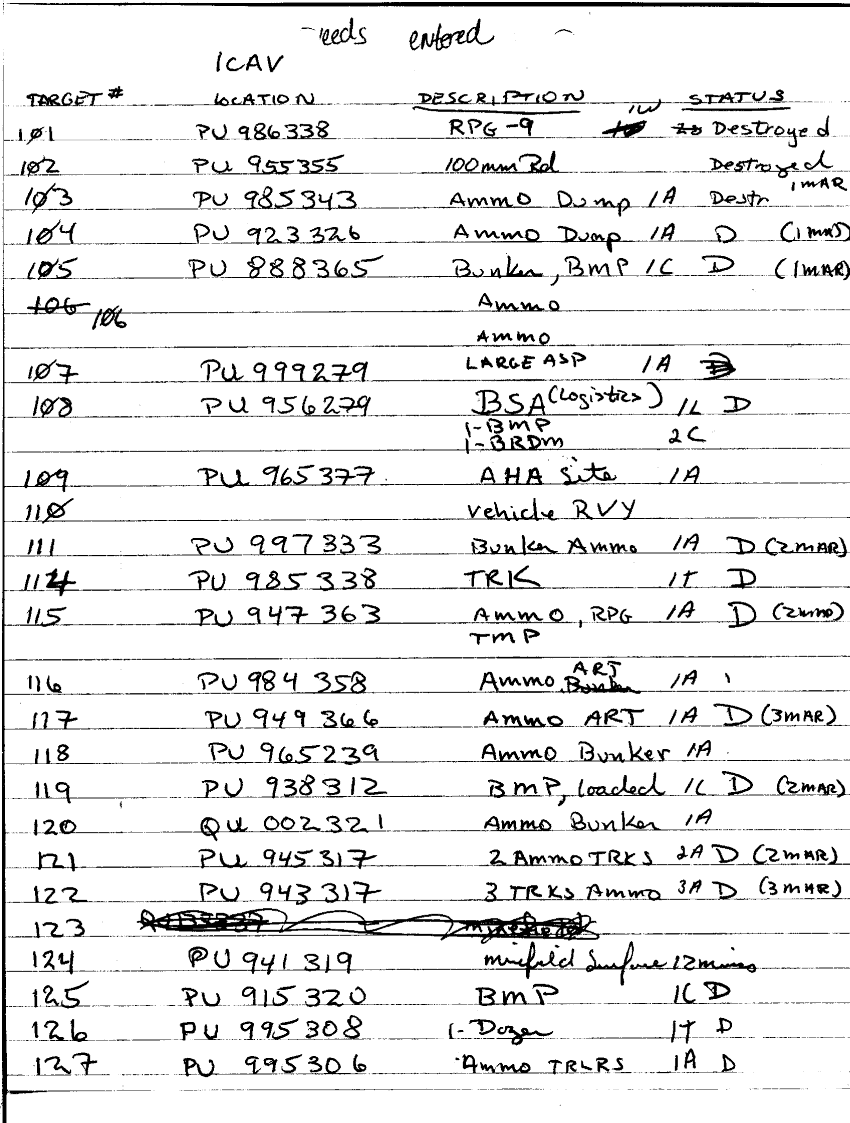 needs entered
ICAV
TARGET # LOCATION DESCRIPTION STATUS
1W
101 PU 986338 RPG-9 Destroyed
102 PU 955355 100mm Rd Destroyed
103 PU 985343 Ammo Dump 1A Destr 1MAR
104 PU 923326 Ammo Dump 1A D
105 PU 888365 Bunker, BMP 1C D (1MAR)
106 106 Ammo
Ammo
107 PU 999279 LARGE ASP 1A
108 PU 956279 BSA (Logistics) 1L D
1-BMP
1-BRDM 2C
109 PU 965377 AHA Site 1A
110 vehicle RVY
111 PU 997333 Bunker Ammo 1A D (2MAR)
114 PU 985338 TRK 1T D
115 PU 947363 Ammo, RPG 1A D
TMP
ART
116 PU 984358 Ammo Bunker 1A
117 PU 949366 Ammo ART 1A D (3MAR)
118 PU 965239 Ammo Bunker 1A
119 PU 938312 BMP, loaded 1C D (2MAR)
120 QU 002321 Ammo Bunker 1A
121 PU 945317 2 Ammo TRKS 2A D (2MAR)
122 PU 943317 3 TRKS Ammo 3A D (3MAR)
123
124 PU 941319 minefield Surface 12 mines
125 PU 915320 BMP 1C D
126 PU 995308 1-Dozer 1T D
127 PU 995306 Ammo TRLRS 1A D